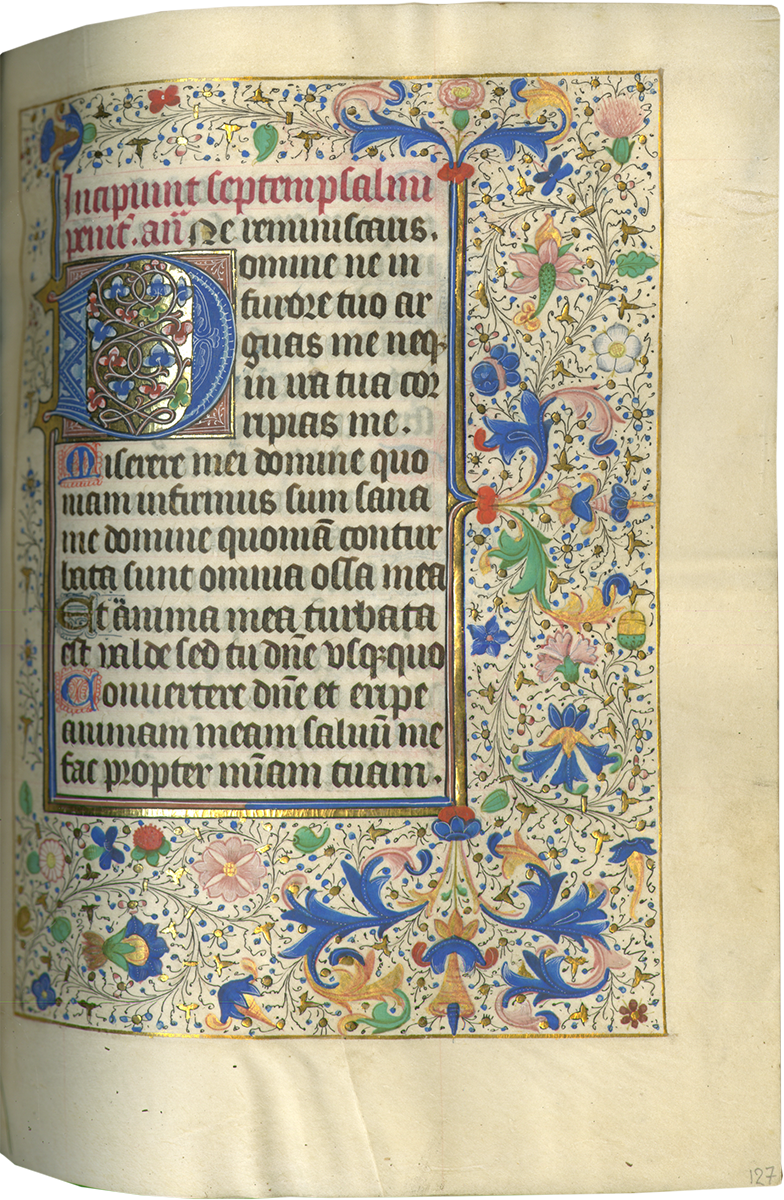 Incipiunt septem psalmi
penit̄. añ Ne reminiscaris.
Domine ne in
furore tuo ar
guas me neqꝫ
in ira tua cor
ripias me.
Miserere mei domine quo
niam infirmus sum sana
me domine quoniā contur
bata sunt omnia ossa mea
Et anima mea turbata
est valde sed tu dn̄e vsqꝫquo
Conuertere dn̄e et eripe
animam meam saluū me
fac propter mīam tuam.
127